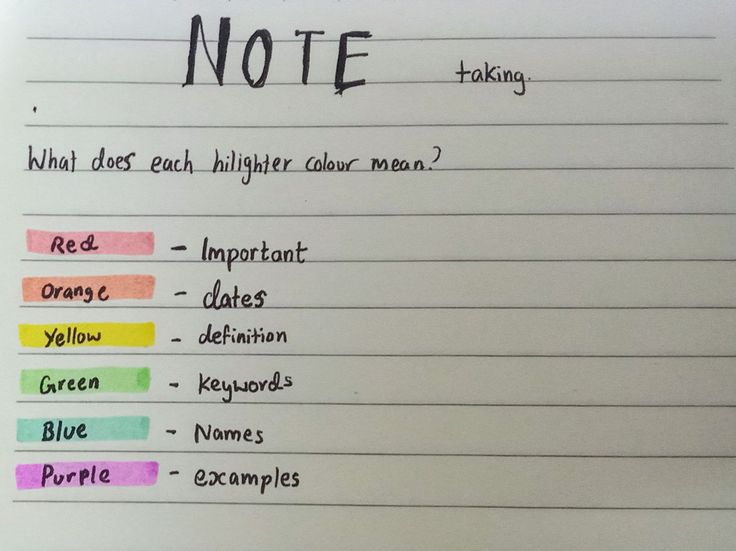 NOTE taking.
What does each hilighter colour mean?
Red - Important
Orange - dates
Yellow - definition
Green - Keywords
Blue - Names
Purple - examples